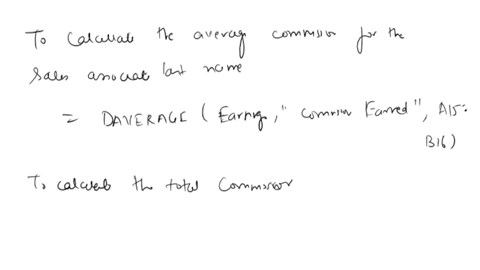 To Calculate the average commission for the
Sales associate last name
= DAVERAGE ( Earning, " Commission Earned ", A15:
B16)
To calculate the total Commission